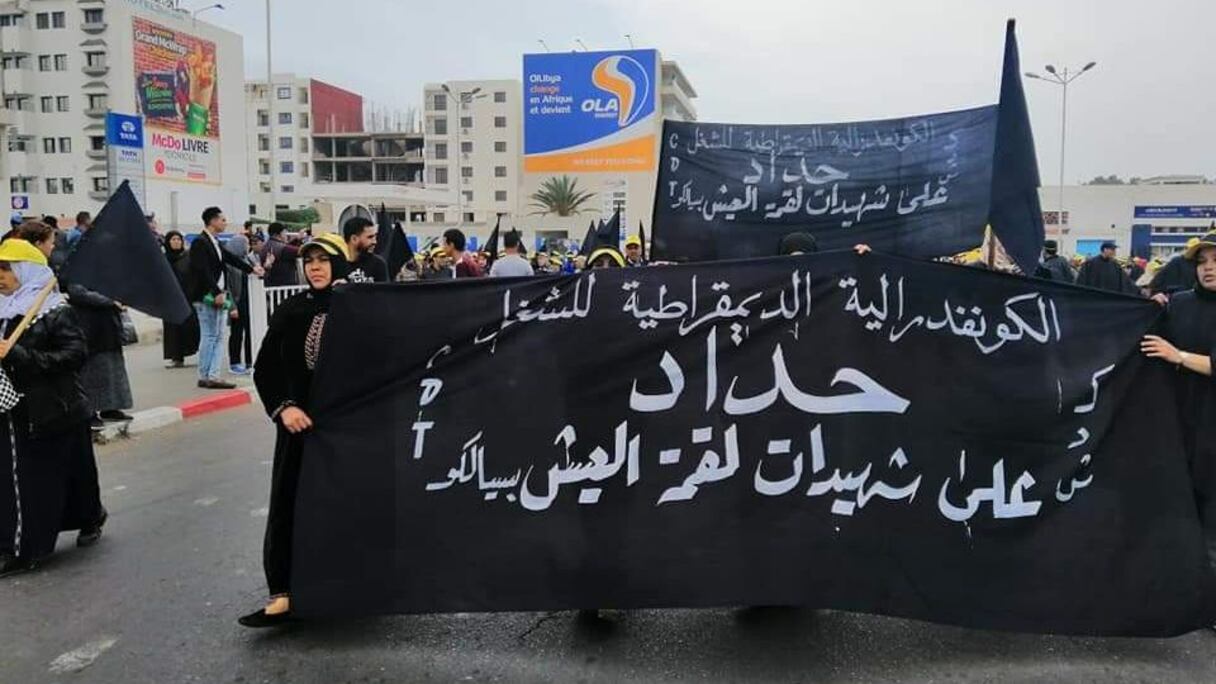 Grand McWrap
McDo LIVRE
TATA
TATA
OiLibya
change
en Afrique
et devient
OLA
ENERGY
الكونفدرالية الديمقراطية للشغل
C
D
T
حداد
ش
على شهيدات لقمة العيش بسيالكو
الكونفدرالية الديمقراطية للشغل
C
D
T
حداد
ك
د
ش
على شهيدات لقمة العيش بسيالكو